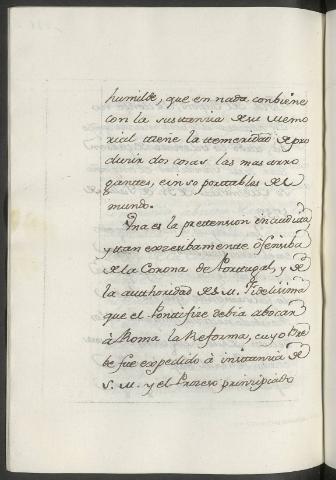 humilde, que en nada conbiene
con la sustancia de su Memo
rial tiene la temeridad de pro
ducir dos cosas las mas arro
gantes, e inso portables del
mundo.
Una es la pretension inaudita
y tan excesibamente ofensiba
de la Corona de Portugal, y de
la authoridad de S. M. Fidelisima
que el Pontifize debia abocar
à Roma la Reforma, cuyo Bre
be fue expedido à instancia de
S. M. y el Prozeso prinzipiado